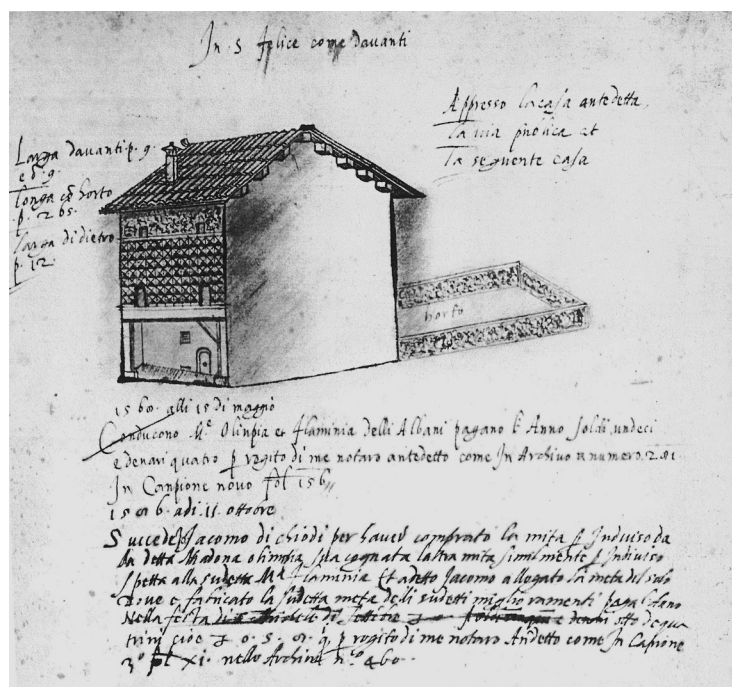 In S felice come davanti
Appresso la casa antedetta
la via publica et
la seguente casa
Larga davanti p. 9.
e d. 9.
longa co horto
p. 265.
larga di dietro
p. 12.
horto
1560. alli 15 di maggio
Conducono M.e Olinpia et flaminia delli Albani pagano l'Anno soldi undeci
e denari quatro p rogito di me notaro antedetto come In Archivo a numero 201
In Canpione novo fol 156
adi 11. ottore
Succede Jacomo di chiodi per haver comprato la mita p Indiviso da
da detta Madona olimpia sua cognata laltra mita similmente p Indiviso
spetta alla sudetta flaminia Et adetto Jacomo allogato la meta del suolo
dove e fabricato la sudetta meta delli sudetti miglioramenti paga
Nella festa di e denari otto de qua
trini cioe o. 5. p rogito di me notaro Andetto come In Capione
3.o fol XI. nello Archivi n.o 460.